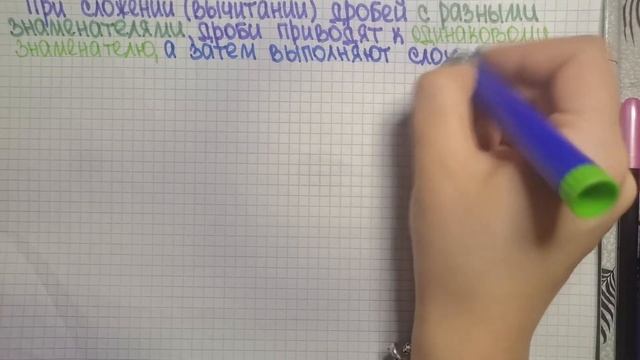 При сложении (вычитании) дробей с разными
знаменателями, дроби приводят к одинаковому
знаменателю, а затем выполняют